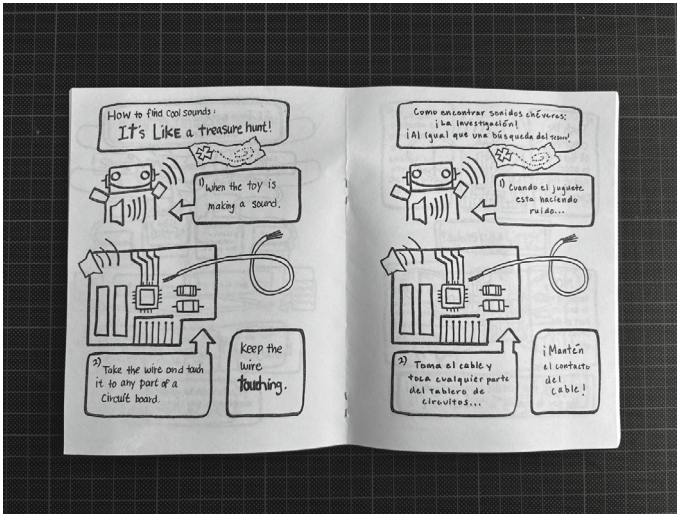 How to find cool sounds:
It's Like a treasure hunt!
1) When the toy is
making a sound.
2) Take the wire and touch
it to any part of a
circuit board.
Keep the
wire
touching.
Como encontrar sonidos chéveres:
¡La investigación!
¡Al igual que una búsqueda del tesoro!
1) Cuando el juguete
esta haciendo
ruido...
2) Toma el cable y
toca cualquier parte
del tablero de
circuitos...
¡Mantén
el contacto
del
cable!